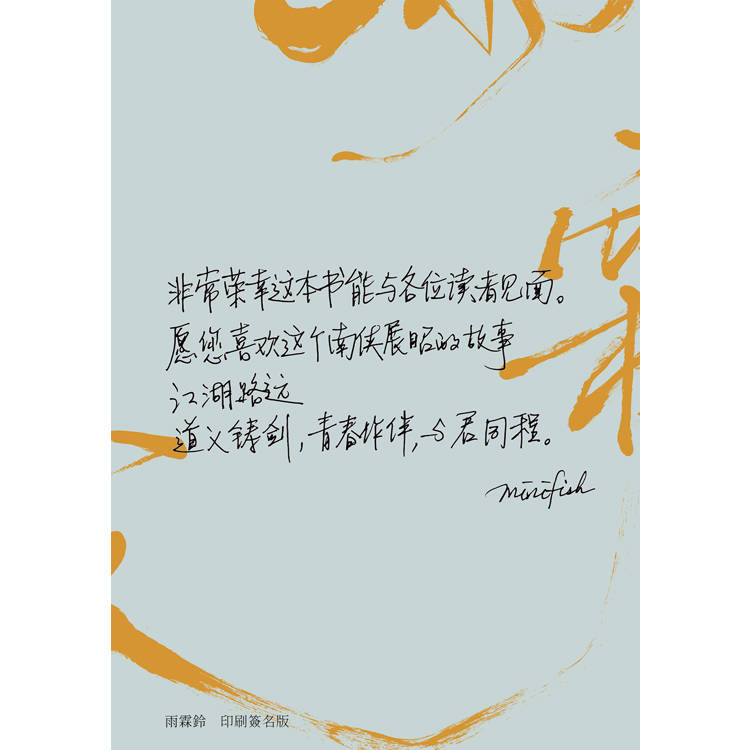 非常荣幸这本书能与各位读者见面。
愿您喜欢这个南侠展昭的故事
江湖路远
道义铸剑,青春作伴,与君同程。
minifish
雨霖鈴 印刷簽名版